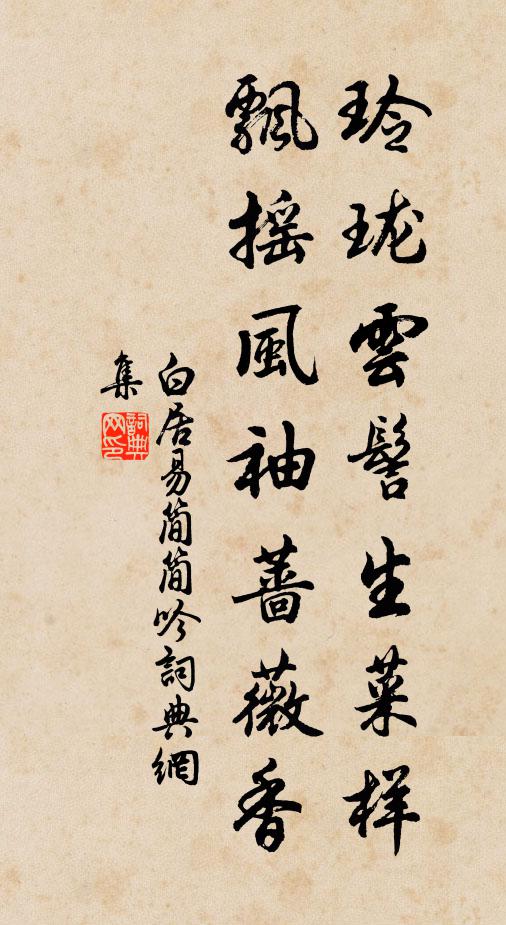 玲瓏雲髻生菜样
飄摇風袖薔薇香
白居易简简吟詞典網
集
詞典
网印